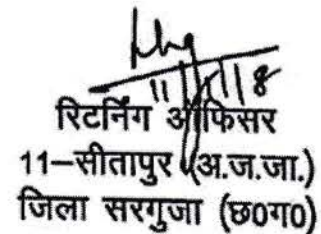 रिटर्निंग ऑफिसर
11–सीतापुर (अ.ज.जा.)
जिला सरगुजा (छ0ग0)